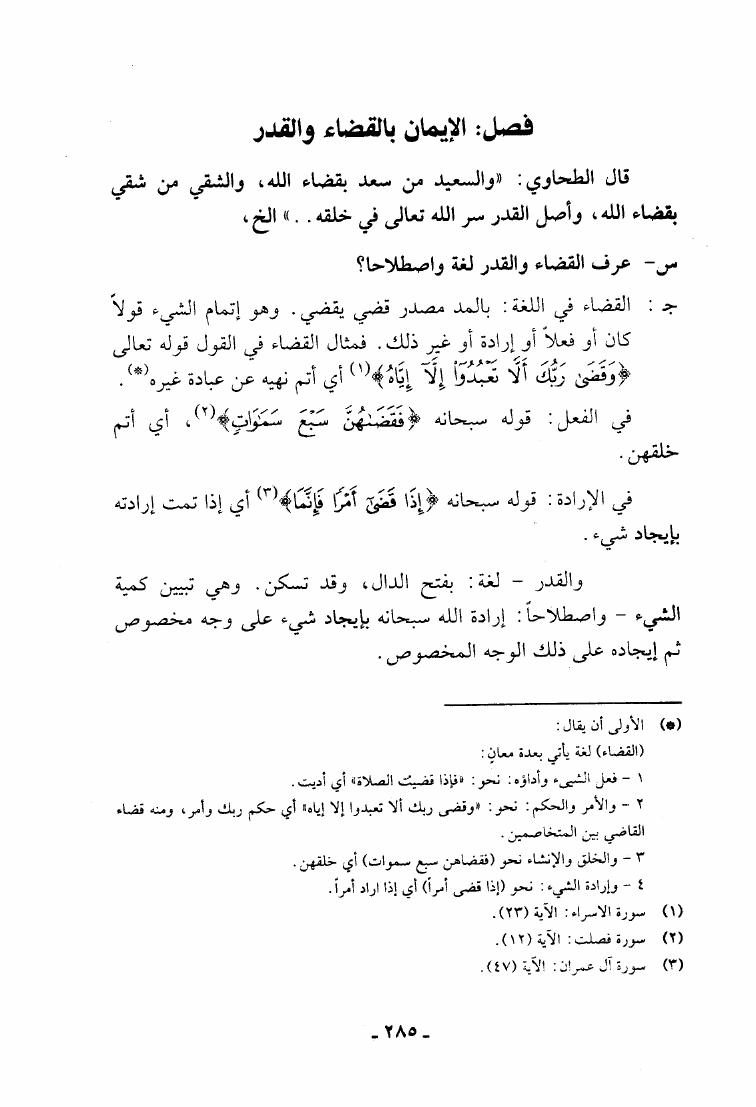 فصل: الإيمان بالقضاء والقدر
قال الطحاوي: «والسعيد من سعد بقضاء الله، والشقي من شقي
بقضاء الله، وأصل القدر سر الله تعالى في خلقه. .» الخ،
س- عرف القضاء والقدر لغة واصطلاحا؟
جـ : القضاء في اللغة: بالمد مصدر قضي يقضي. وهو إتمام الشيء قولاً
كان أو فعلاً أو إرادة أو غير ذلك. فمثال القضاء في القول قوله تعالى
﴿وَقَضَىٰ رَبُّكَ أَلَّا تَعْبُدُوٓا۟ إِلَّآ إِيَّاهُ﴾(١) أي أتم نهيه عن عبادة غيره(*).
في الفعل: قوله سبحانه ﴿فَقَضَىٰهُنَّ سَبْعَ سَمَٰوَاتٍ﴾(٢)، أي أتم
خلقهن.
في الإرادة: قوله سبحانه ﴿إِذَا قَضَىٰٓ أَمْرًا فَإِنَّمَا﴾(٣) أي إذا تمت إرادته
بإيجاد شيء.
والقدر - لغة: بفتح الدال، وقد تسكن. وهي تبيين كمية
الشيء - واصطلاحاً: إرادة الله سبحانه بإيجاد شيء على وجه مخصوص
ثم إيجاده على ذلك الوجه المخصوص.
(*) الأولى أن يقال:
(القضاء) لغة يأتي بعدة معانٍ:
١ - فعل الشيء وأداؤه: نحو: «فإذا قضيت الصلاة» أي أديت.
٢ - والأمر والحكم: نحو: «وقضى ربك ألا تعبدوا إلا إياه» أي حكم ربك وأمر، ومنه قضاء
القاضي بين المتخاصمين.
٣ - والخلق والإنشاء نحو (فقضاهن سبع سموات) أي خلقهن.
٤ - وإرادة الشيء: نحو (إذا قضى أمراً) أي إذا اراد أمراً.
(١) سورة الاسراء: الآية (٢٣).
(٢) سورة فصلت: الآية (١٢).
(٣) سورة آل عمران: الآية (٤٧).
- ٢٨٥ -